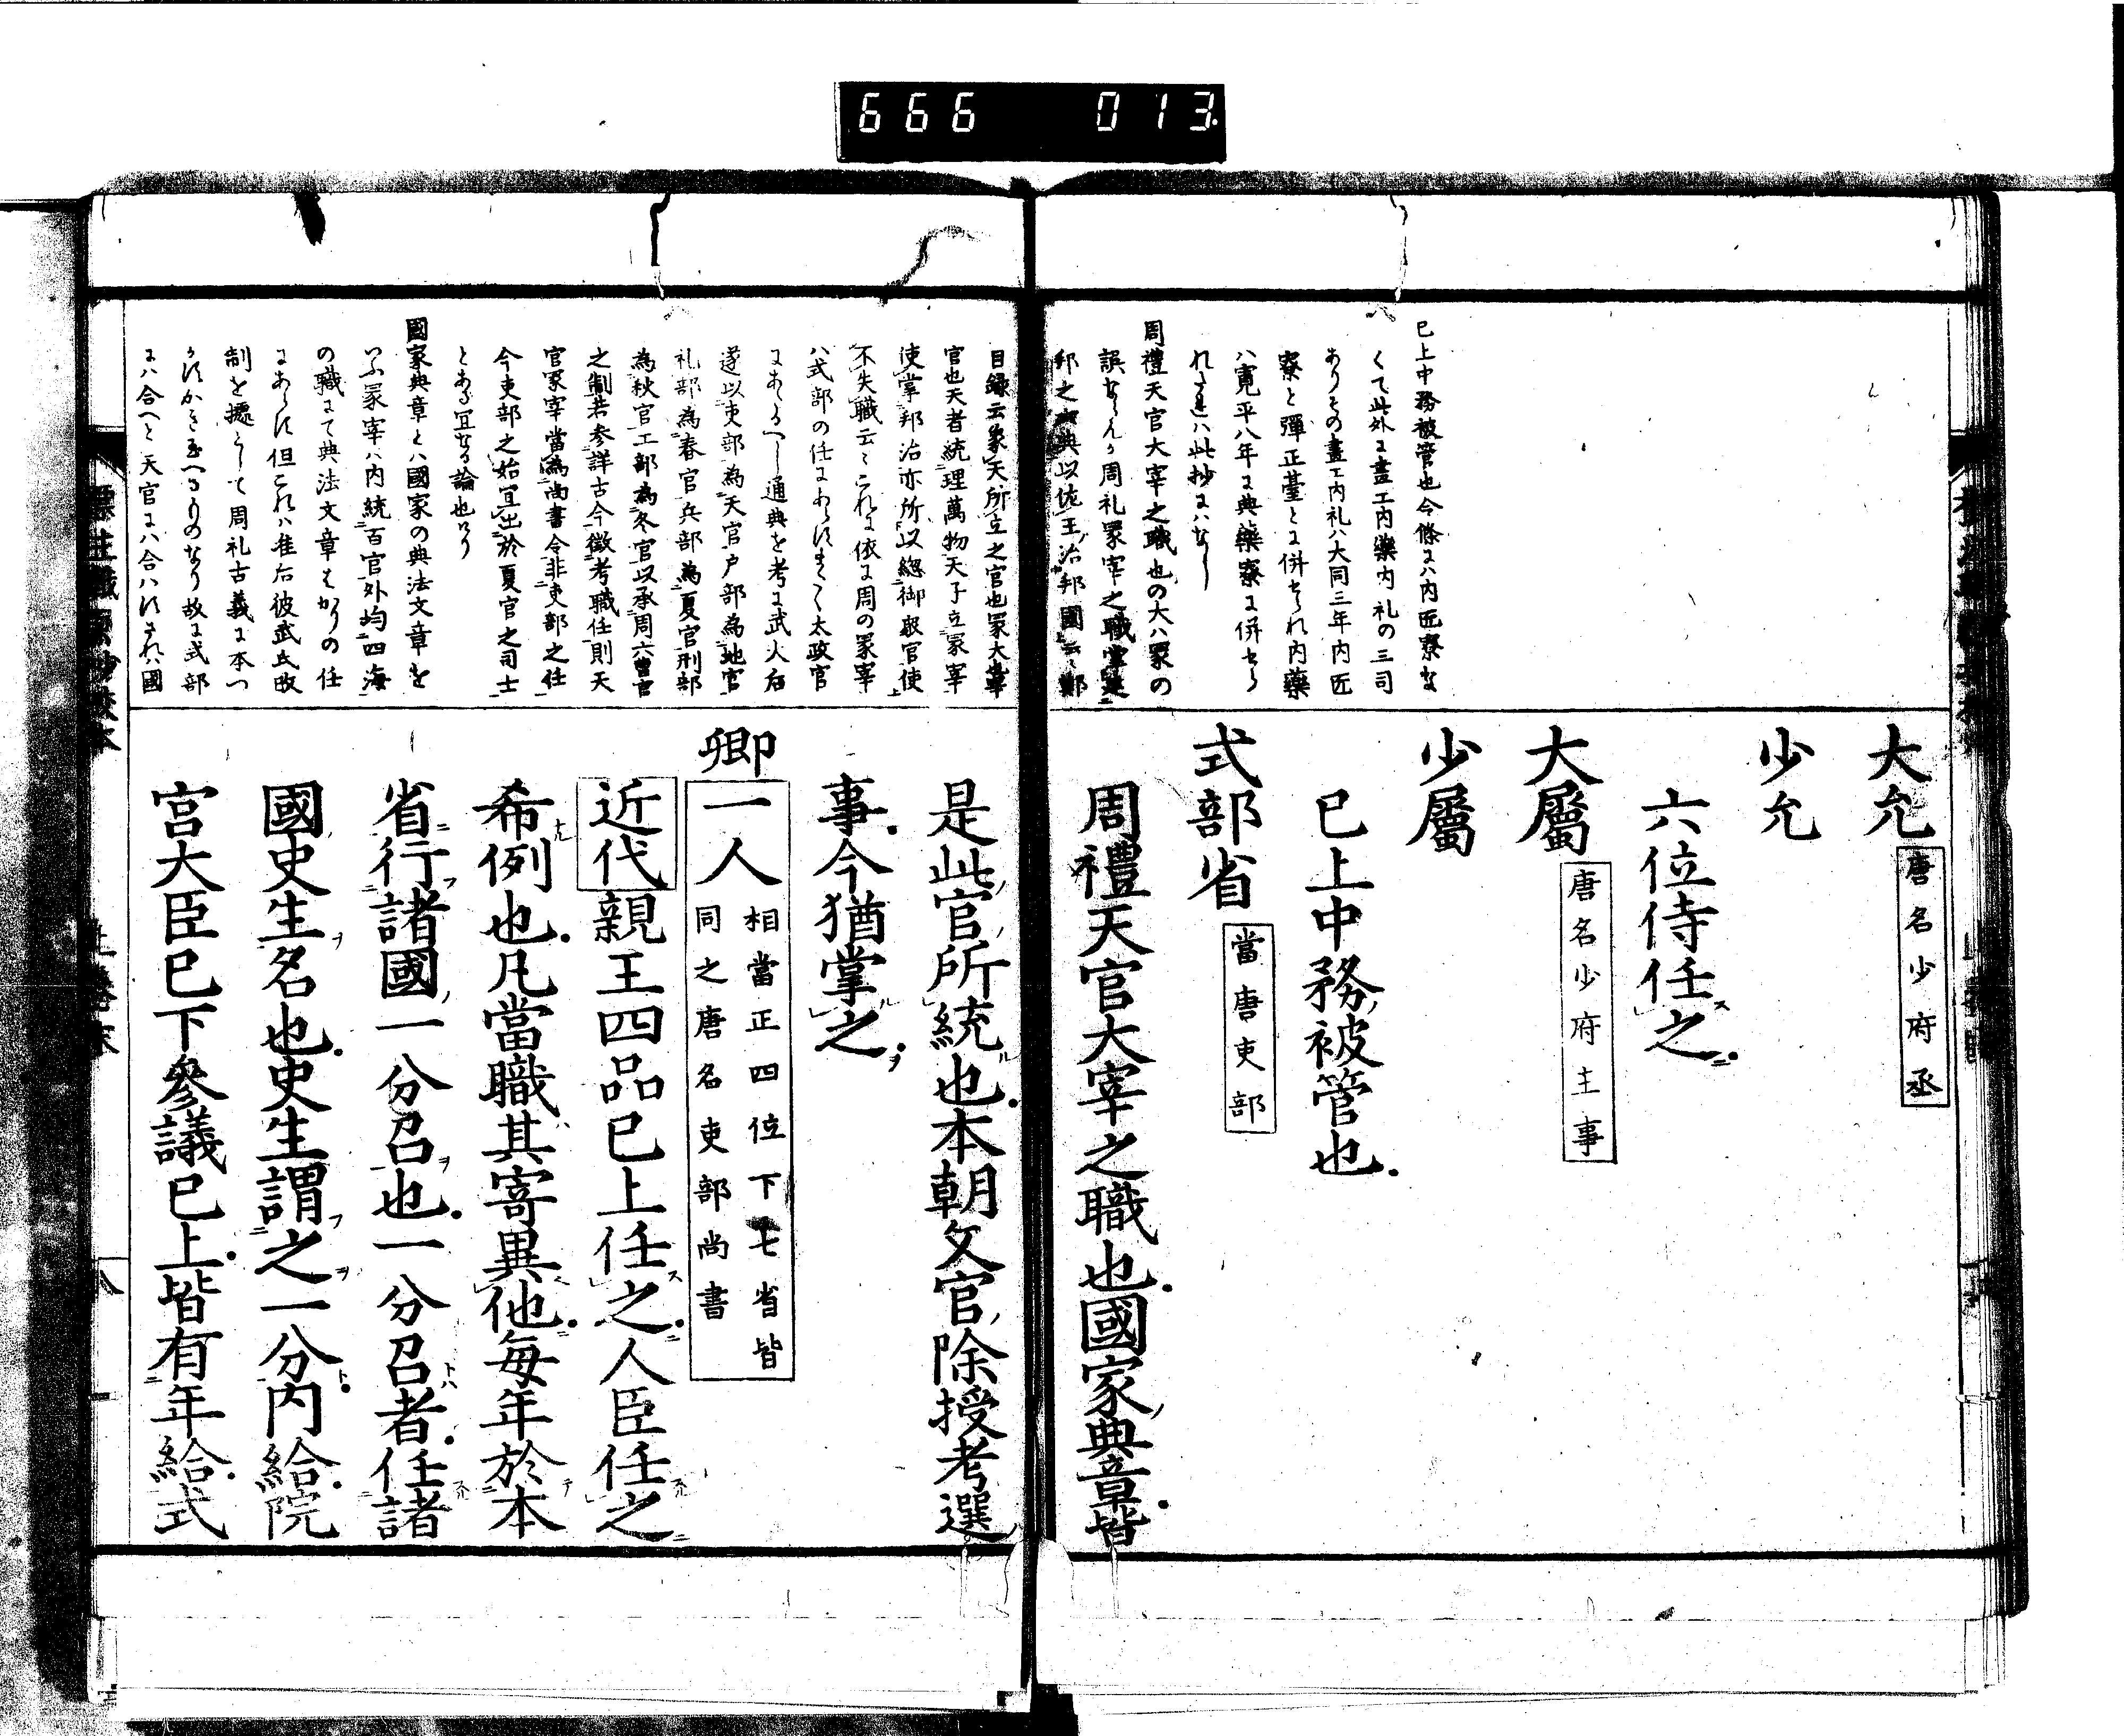 666 013
已上中務被管也今條ニハ内匠寮な
くて此外に畫工内藥内礼の三司
ありその畫工内礼ハ大同三年内匠
寮と彈正臺とに併せられ内藥
ハ寛平八年に典藥寮に併せら
れたれハ此抄にハなし
周禮天官大宰之職也の大ハ冢の
誤ならんか周礼冢宰之職掌建
邦之六典以佐王治邦國云〻鄭
大允 唐名少府丞
少允
六位侍任之
大屬 唐名少府主事
少屬
已上中務被管也
式部省 當唐吏部
周禮天官大宰之職也國家典章皆
目録云象天所立之官也冢大宰
官也天者統理萬物天子立冢宰
使掌邦治亦所以緫御衆官使
不失職云〻これに依に周の冢宰
ハ式部の任にあらすまさしく太政官
にあたるへし通典を考に武火后
遂以吏部為天官戸部為地官
礼部為春官兵部為夏官刑部
為秋官工部為冬官以承周六曹官
之制若参詳古今徴考職任則天
官冢宰當為尚書令非吏部之任
今吏部之始宜出於夏官之司士
とある宜なる論也けり
國家典章とハ國家の典法文章を
いふ冢宰ハ内統百官外均四海
の職にて典法文章はかりの任
にあらす但これハ准后彼武氏改
制を據として周礼古義に本つ
かすかき玉へるものなり故に式部
にハ合へと天官にハ合ハすされハ國
是此官所統也本朝文官除授考選
事今猶掌之
卿 一人 相當正四位下七省皆同之唐名吏部尚書
近代親王四品已上任之人臣任之
希例也凡當職其寄異他每年於本
省行諸國一分召也一分召者任諸
國史生名也史生謂之一分内給院
宮大臣已下參議已上皆有年給式
標註職原抄校本 上卷末 八